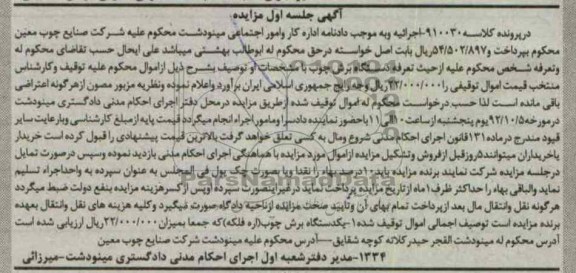 آگهی جلسه اول مزایده
درپرونده کلاسه ۹۱۰۰۳۰-اجرائیه وبه موجب دادنامه اداره کار وامور اجتماعی مینودشت محکوم علیه شرکت صنایع چوب معین
محکوم بپرداخت و۵۴/۵۰۲/۸۹۷ریال بابت اصل خواسته درحق محکوم له ابوطالب بهشتی میباشد علی ایحال حسب تقاضای محکوم له
ومعرفه شخص محکوم علیه ازحیث تعرفه دستگاه برش چوب با مشخصات و توصیف بشرح ذیل ازاموال محکوم علیه توقیف وکارشناس
منتخب قیمت اموال توقیفی را ۲۲/۰۰۰/۰۰۰ریال وجه رایج جمهوری اسلامی ایران برآورد واعلام نموده ونظریه مزبور مصون ازهرگونه اعتراضی
باقی مانده است لذا حسب درخواست محکوم له اموال توقیف شده ازطریق مزایده درمحل دفتر اجرای احکام مدنی دادگستری مینودشت
درمورخه ۹۲/۱۰/۵یوم پنجشنبه ازساعت ۱۰الی۱۱باحضور نماینده دادسرا ومامور اجراء انجام میگردد قیمت پایه ازمبلغ کارشناسی وبارعایت سایر
قیود مندرج درماده۱۳۱قانون اجرای احکام مدنی شروع ومال به کسی تعلق خواهد گرفت بالاترین قیمت پیشنهادی را قبول کرده است خریدار
یاخریداران میتوانند۵روز قبل ازفروش وتشکیل مزایده ازاموال مورد مزایده با هماهنگی اجرای احکام مدنی بازدید نموده وسپس درصورت تمایل
درجلسه مزایده شرکت نمایند برنده مزایده باید۱۰درصد بهاء را نقدا ویا بصورت چک پول فی المجلس به عنوان سپرده به واحداجراء تسلیم
نماید والباقی بهاء را حداکثر ظرف۱ماه ازتاریخ مزایده پرداخت نماید دراینصورت سپرده اولی ازکسرهزینه مزایده بنفع دولت ضبط میگردد
هرگونه نقل وانتقال مال بعد ازپرداخت تمام بهای آن وتایید صحت مزایده ازناحیه دادگاه صورت میگیرد وکلیه هزینه های نقل وانتقال بعهده
برنده مزایده است توصیف اجمالی اموال توقیف شده۱-یکدستگاه برش چوب(اره فلکه)که جمعا بمیزان۲۲/۰۰۰/۰۰۰ریال ارزیابی شده است
آدرس محکوم له مینودشت القجر حیدر کلاته کوچه شقایق—آدرس محکوم علیه مینودشت شرکت صنایع چوب معین
۱۳۳۴-مدیر دفترشعبه اول اجرای احکام مدنی دادگستری مینودشت-میرزائی